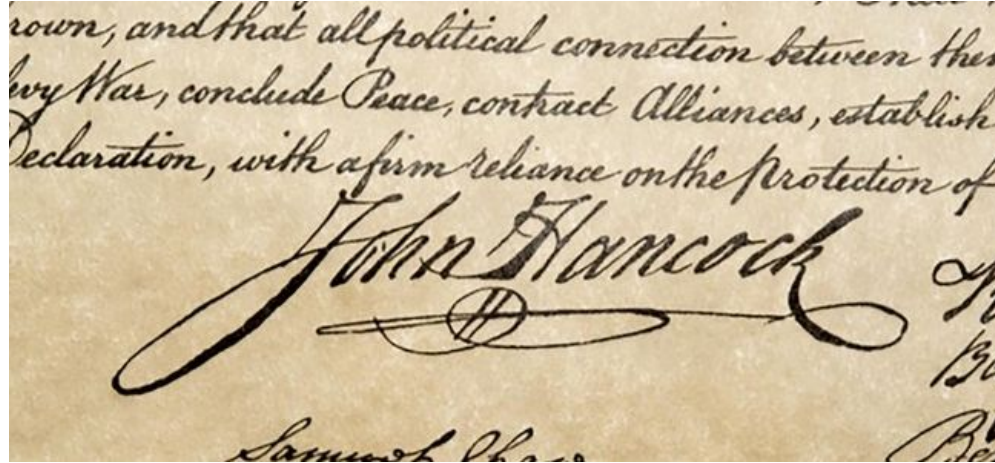 rown, and that all political connection between the
evy War, conclude Peace, contract Alliances, establish
Declaration, with a firm reliance on the Protection of
John Hancock
Samuel Chase